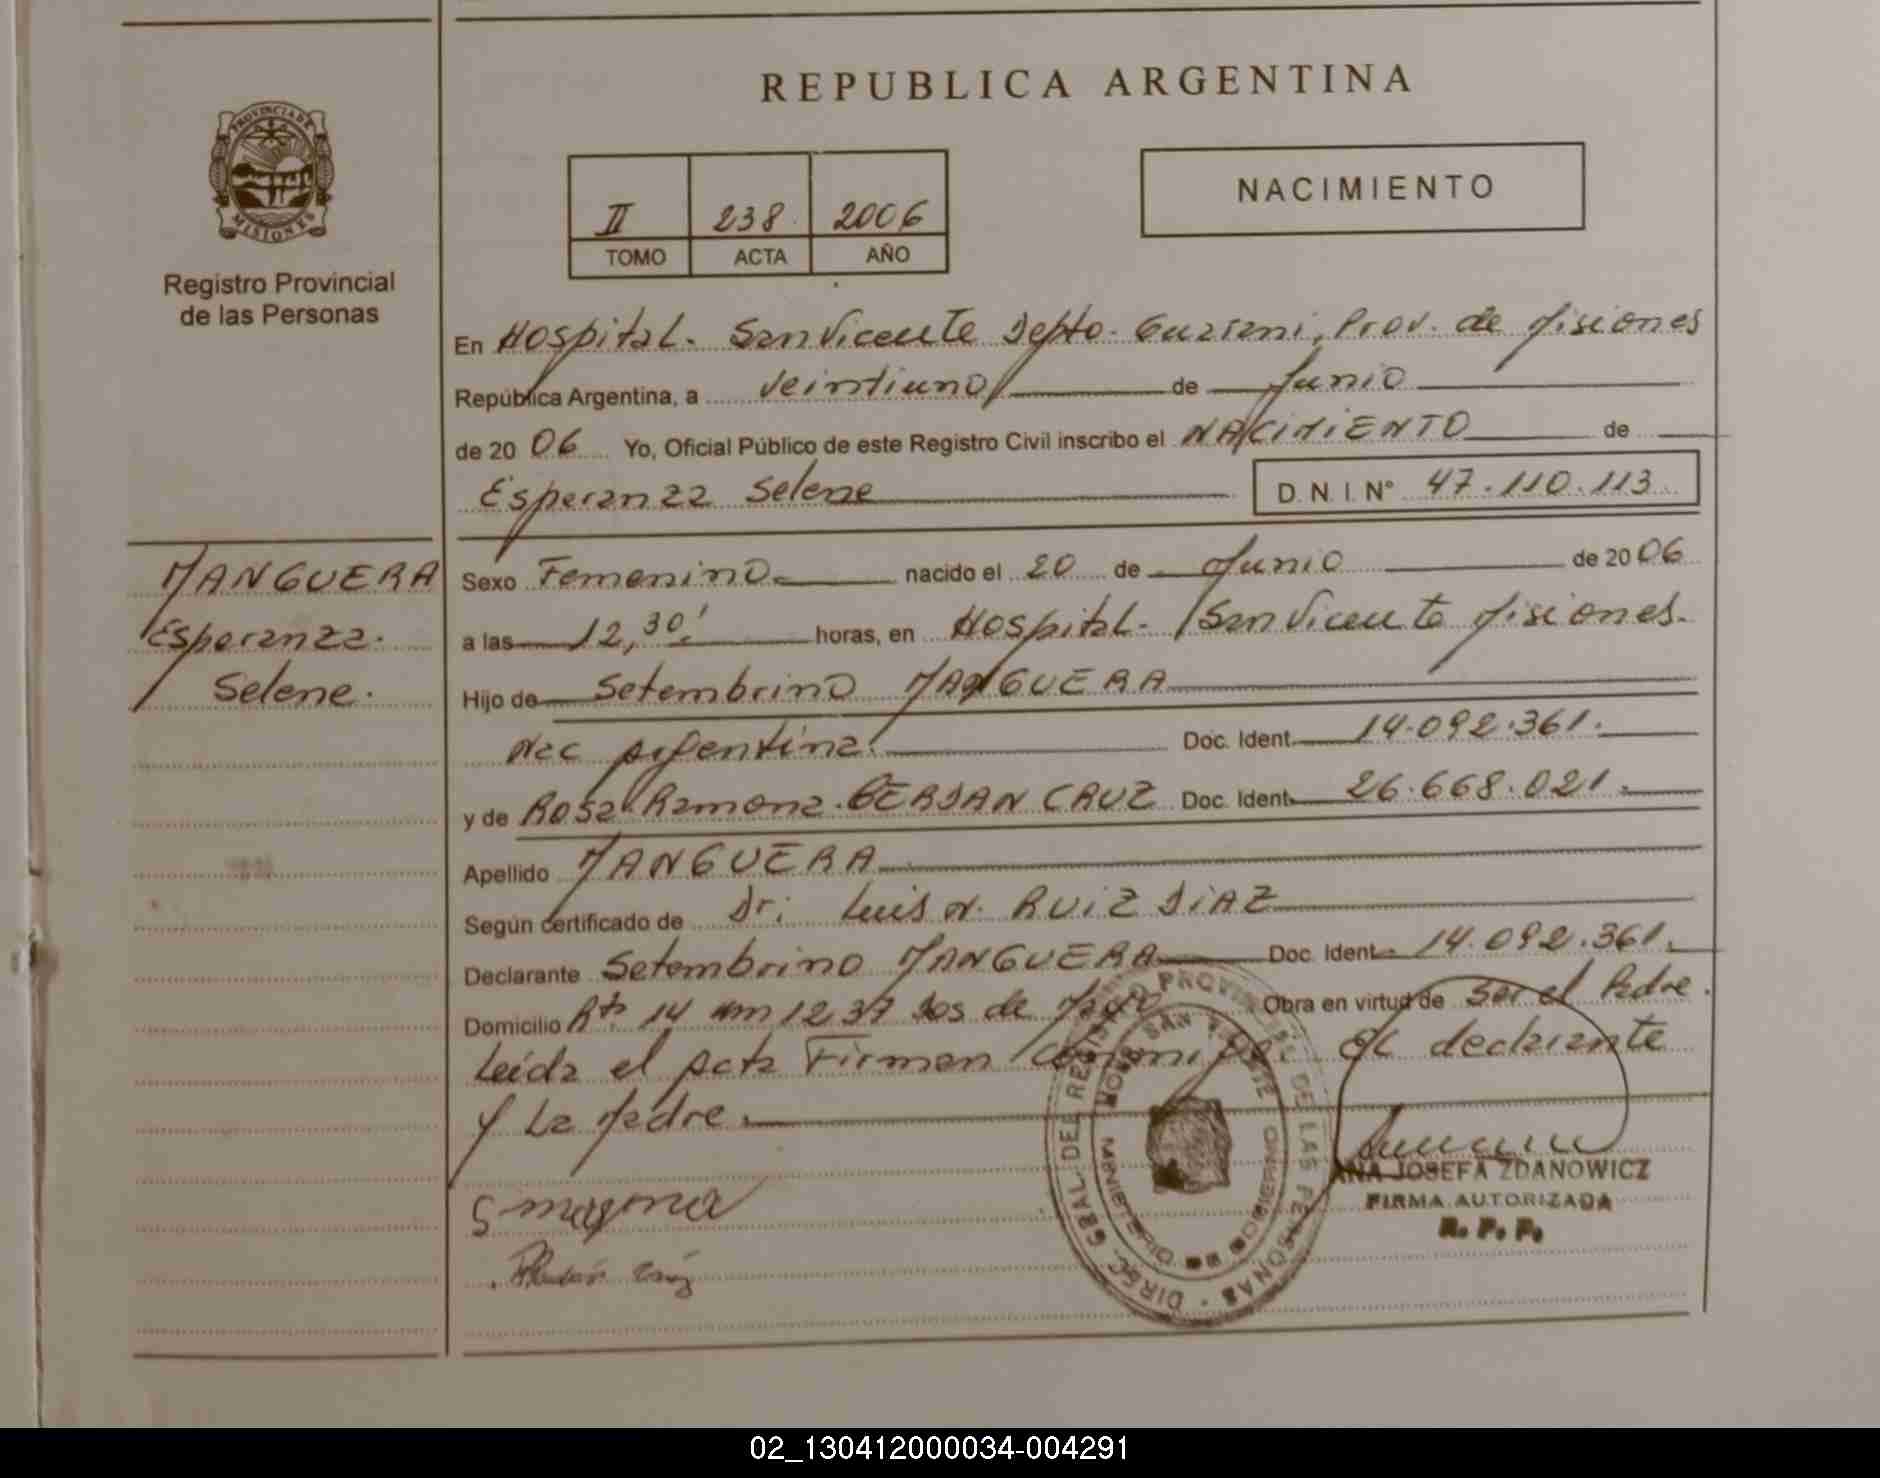 REPUBLICA ARGENTINA
PROVINCIA DE MISIONES
Registro Provincial
de las Personas
II 238 2006
TOMO ACTA AÑO
NACIMIENTO
En Hospital. San Vicente Depto. Guarani, Prov. de Misiones
República Argentina, a veintiuno de Junio
de 2006 Yo, Oficial Público de este Registro Civil inscribo el NACIMIENTO de
Esperanza Selene D. N. I. N° 47.110.113
MANGUERA
Esperanza.
Selene.
Sexo Femenino nacido el 20 de Junio de 2006
a las 12,30' horas, en Hospital. San Vicente Misiones.
Hijo de Setembrino MANGUERA
Nac Argentina. Doc. Ident. 14.092.361.
y de Rosa Ramona CRUZ Doc. Ident. 26.668.021.
Apellido MANGUERA
Según certificado de Dr: Luis N. RUIZ DIAZ
Declarante Setembrino MANGUERA Doc. Ident. 14.092.361.
Domicilio Rta 14 km 1237 Dos de Mayo Obra en virtud de Ser el Padre.
Leída el Acta Firman Conmigo: el declarante
y La Madre.
DIREC. GRAL. DEL REGISTRO PROVINCIAL DE LAS PERSONAS
SAN VICENTE
ANA JOSEFA ZDANOWICZ
FIRMA AUTORIZADA
R. P. P.
02_130412000034-004291